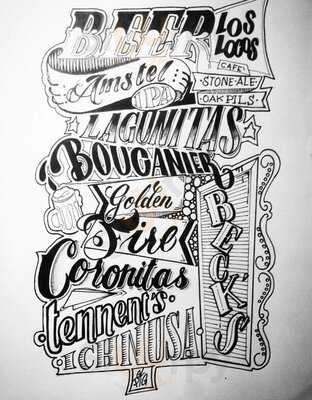 BEER
LOS
LOCOS
CAFE
Amstel
IPA
STONE ALE
OAK PILS.
LAGUNITAS
"BOUCANIER"
Golden
Fire
BECK'S
Coronitas
tennent's
ICHNUSA